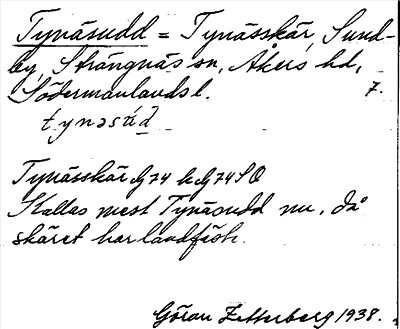 Tynäsudd = Tynässkär, Sund-
by, Strängnäs sn, Åkers hd,
Södermanlands l. 7.
tynəsúd̀
Tynässkär G74 k G74SO
Kallas mest Tynäsudd nu, då
skäret har landfäste.
Göran Zetterberg 1938.